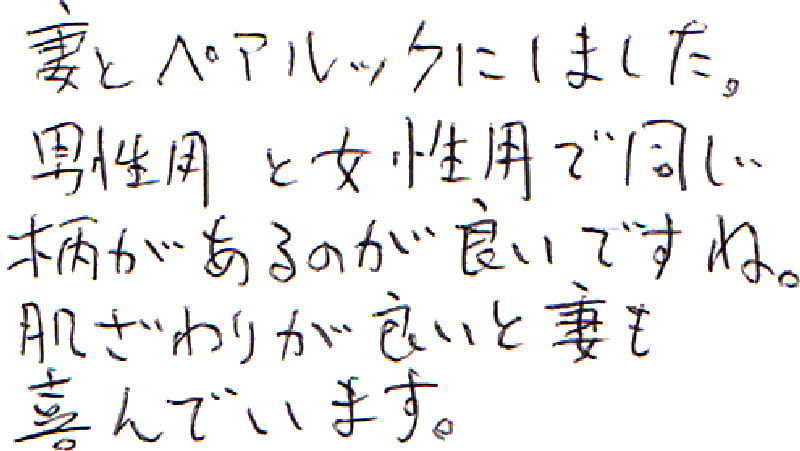 妻とペアルックにしました。
男性用と女性用で同じ
柄があるのが良いですね。
肌ざわりが良いと妻も
喜んでいます。